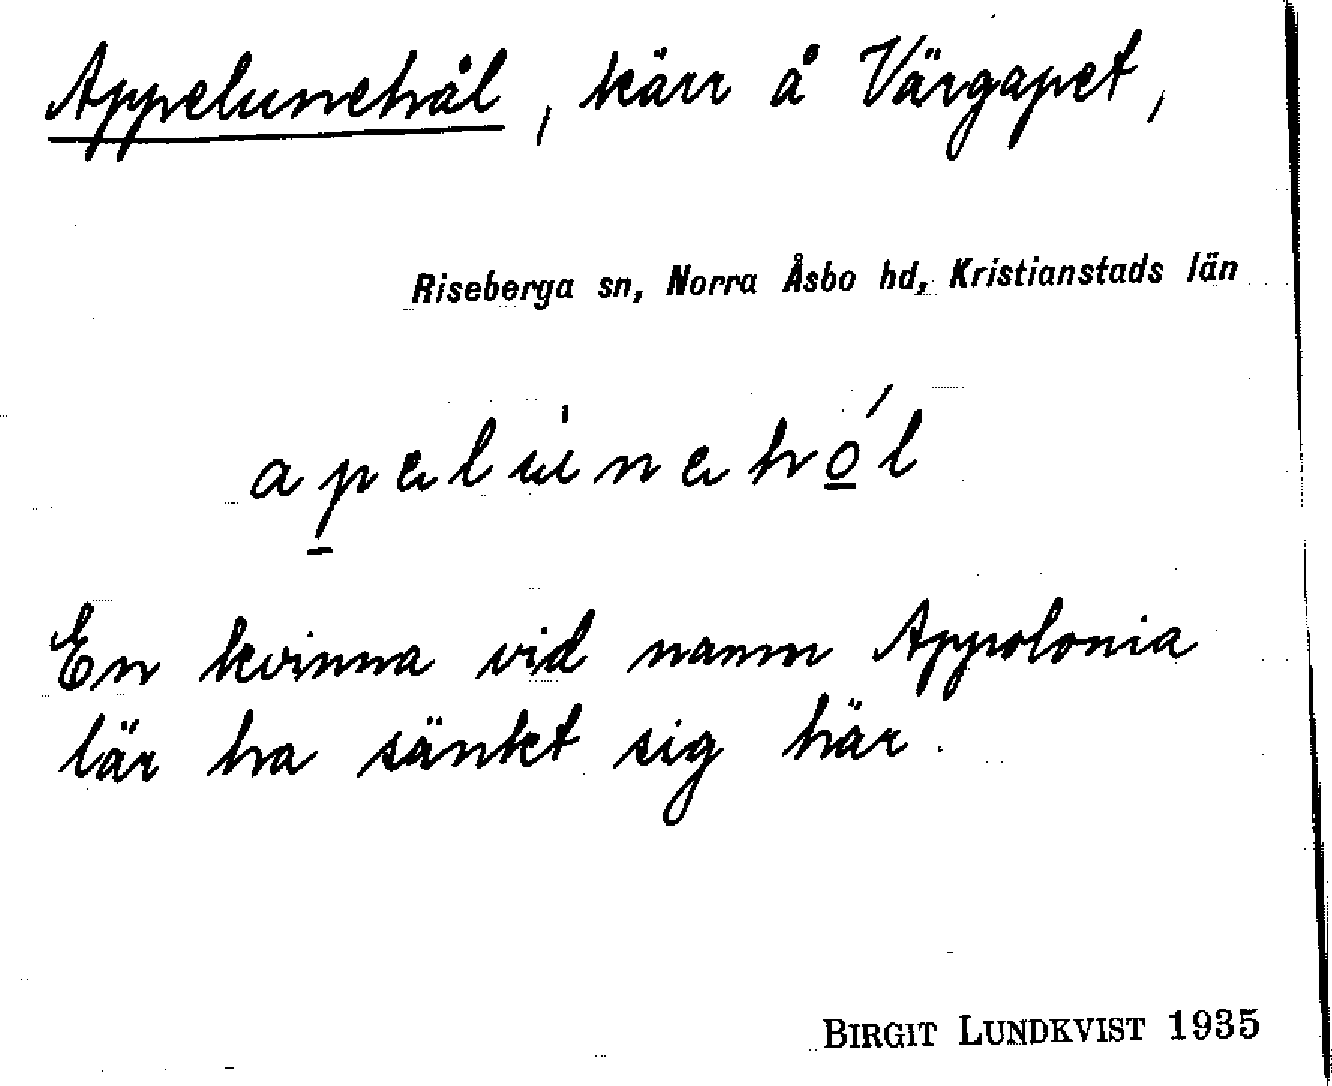 Appelunehål, kärr å Värgapet,
Riseberga sn, Norra Åsbo hd, Kristianstads län
apelúnehól
En kvinna vid namn Appolonia
lär ha sänkt sig här.
BIRGIT LUNDKVIST 1935